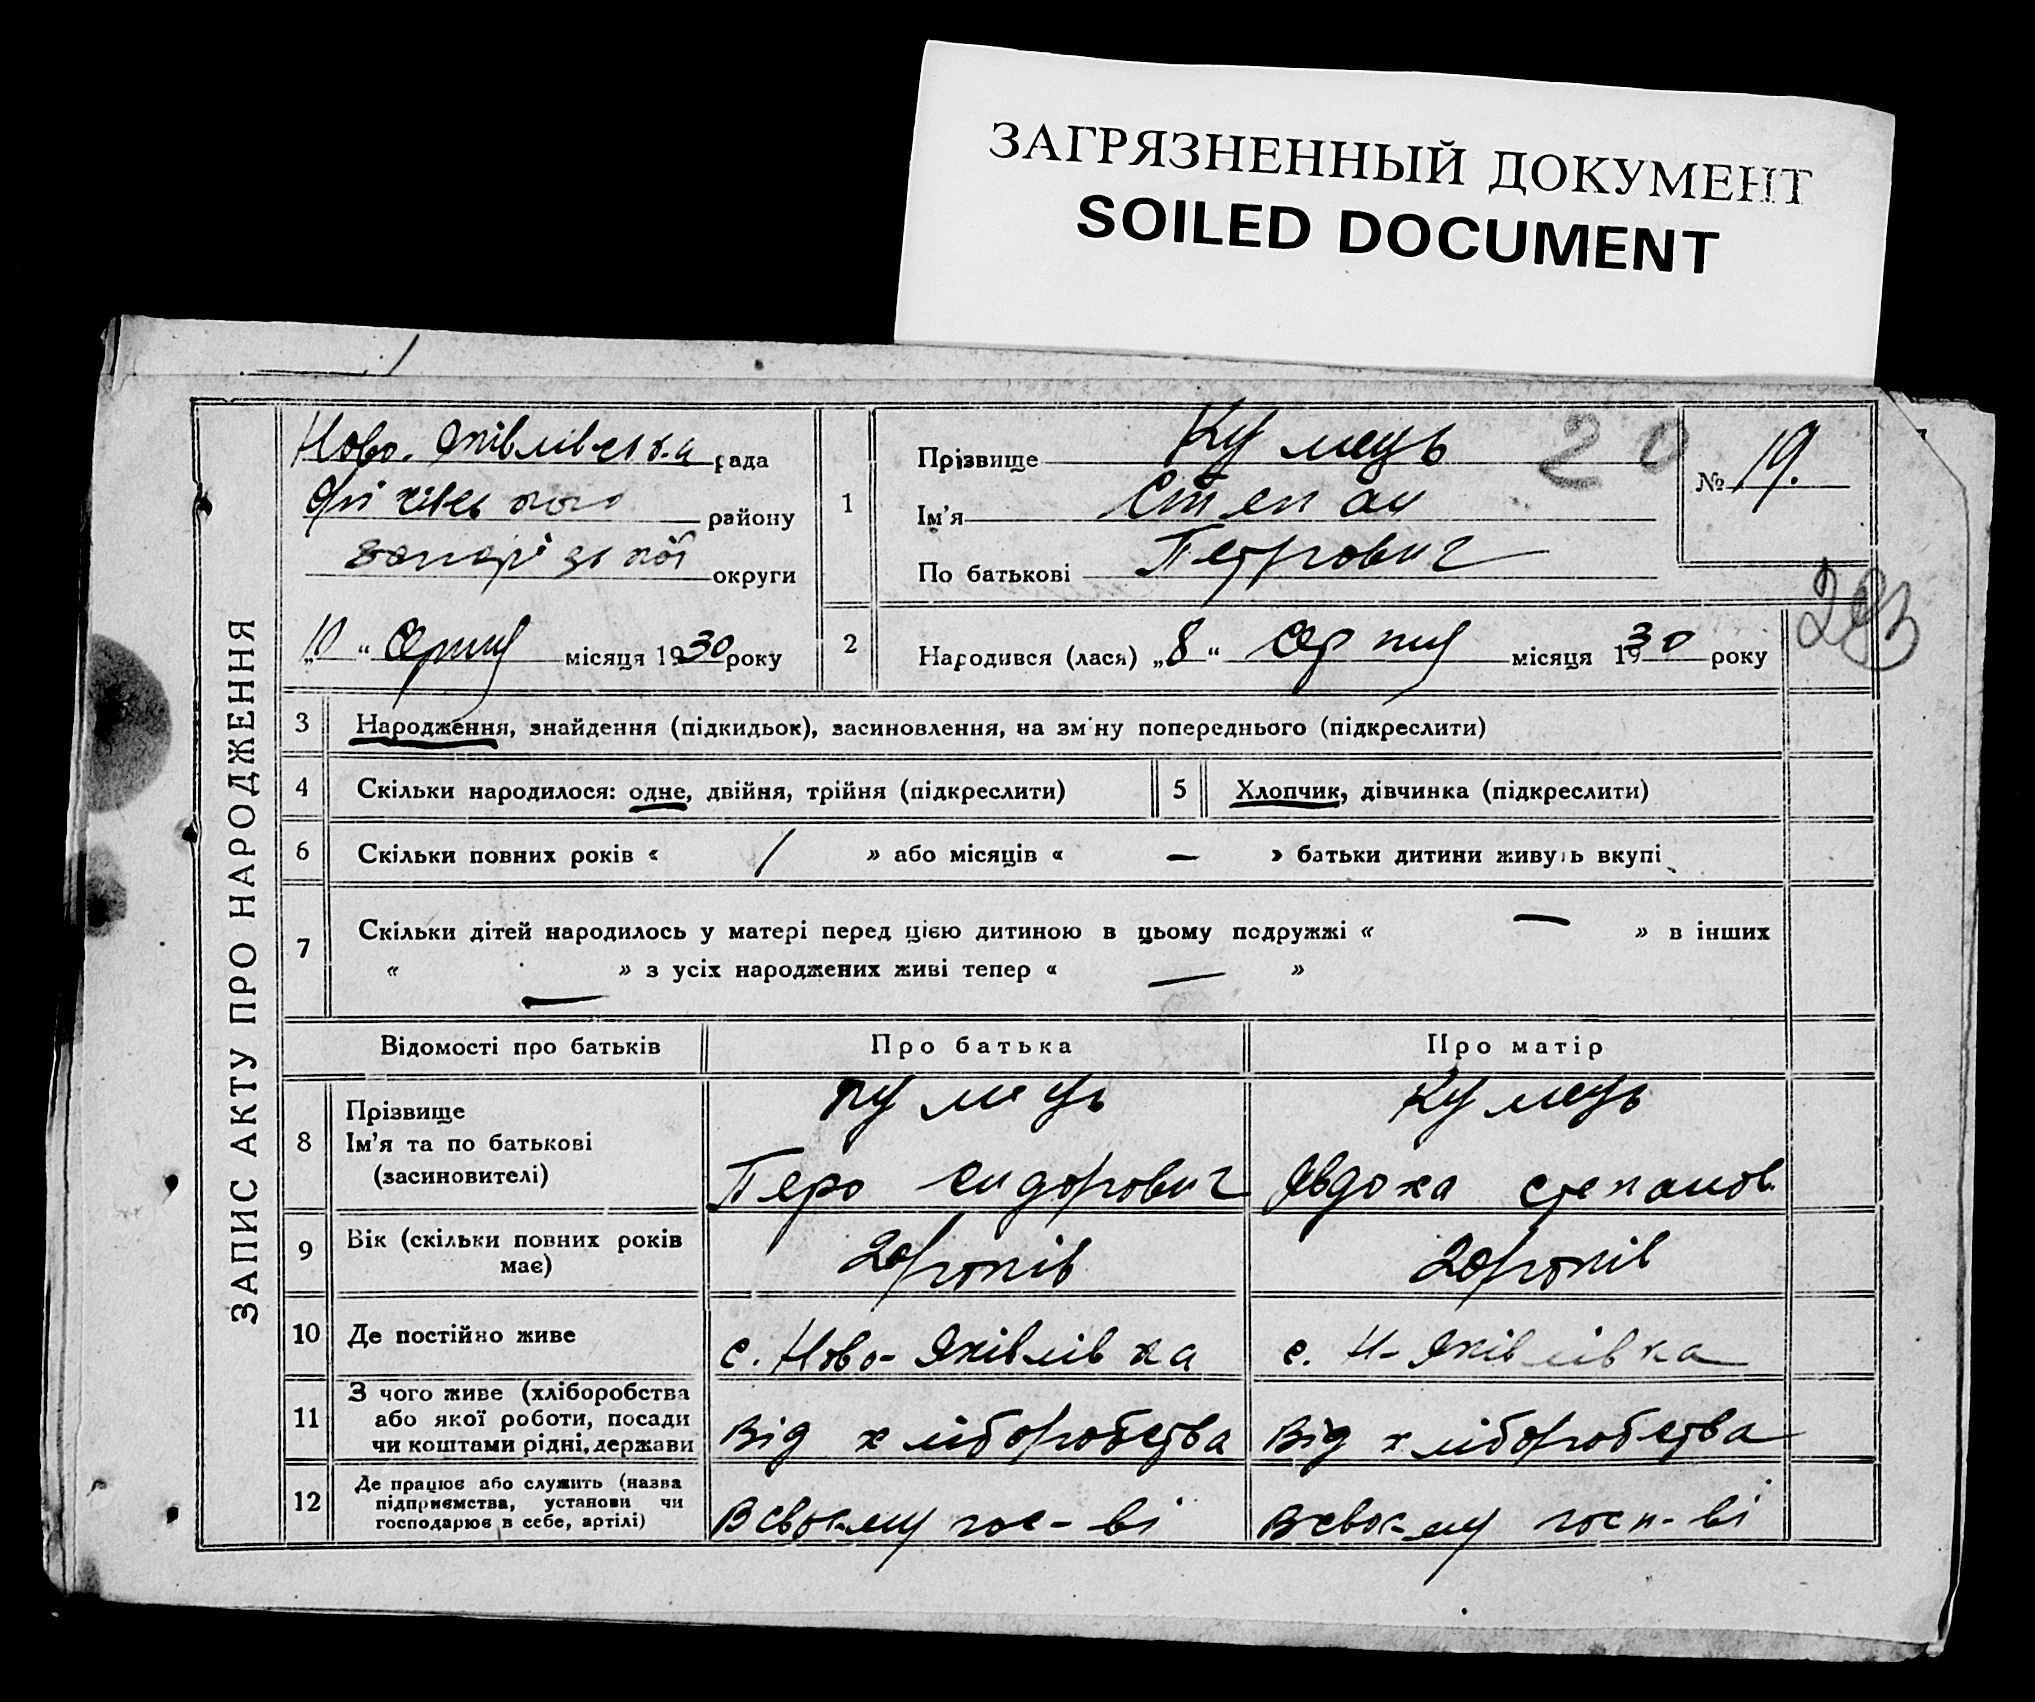 ЗАГРЯЗНЕННЫЙ ДОКУМЕНТ
SOILED DOCUMENT
ЗАПИС АКТУ ПРО НАРОДЖЕННЯ
Ново-Яківлівська рада
району
запорізької округи
„10“ серпня місяця 1930 року
1
Прізвище Кумець
Ім'я Степан
По батькові Петрович
20
№ 19.
2
Народився (лася) „8“ серпня місяця 1930 року
3 Народження, знайдення (підкидьок), засиновлення, на зміну попереднього (підкреслити)
4 Скільки народилося: одне, двійня, трійня (підкреслити)
5 Хлопчик, дівчинка (підкреслити)
6 Скільки повних років « / » або місяців « — » батьки дитини живуть вкупі
7 Скільки дітей народилось у матері перед цією дитиною в цьому подружжі « — » в інших
« — » з усіх народжених живі тепер « — »
Відомості про батьків Про батька Про матір
8 Прізвище
Ім'я та по батькові
(засиновителі)
Кумець
Петро сидорович
Кумець
Явдоха степанов.
9 Вік (скільки повних років
має)
20 років
20 років
10 Де постійно живе
с. Ново-Яківлівка
с. Н-Яківлівка
11 З чого живе (хліборобства
або якої роботи, посади
чи коштами рідні, держави
Від хліборобства
Від хліборобства
12 Де працює або служить (назва
підприємства, установи чи
господарює в себе, артілі)
В своєму гос-ві
В своєму госп-ві